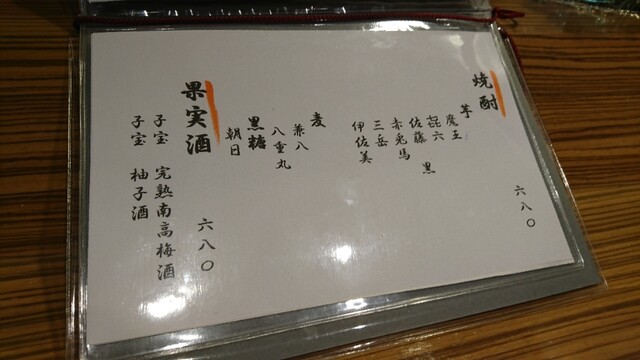 焼酎 六八〇
芋
魔王
㐂六
佐藤 黒
赤兎馬
三岳
伊佐美
麦
兼八
八重丸
黒糖
朝日
果実酒 六八〇
子宝 完熟南高梅酒
子宝 柚子酒